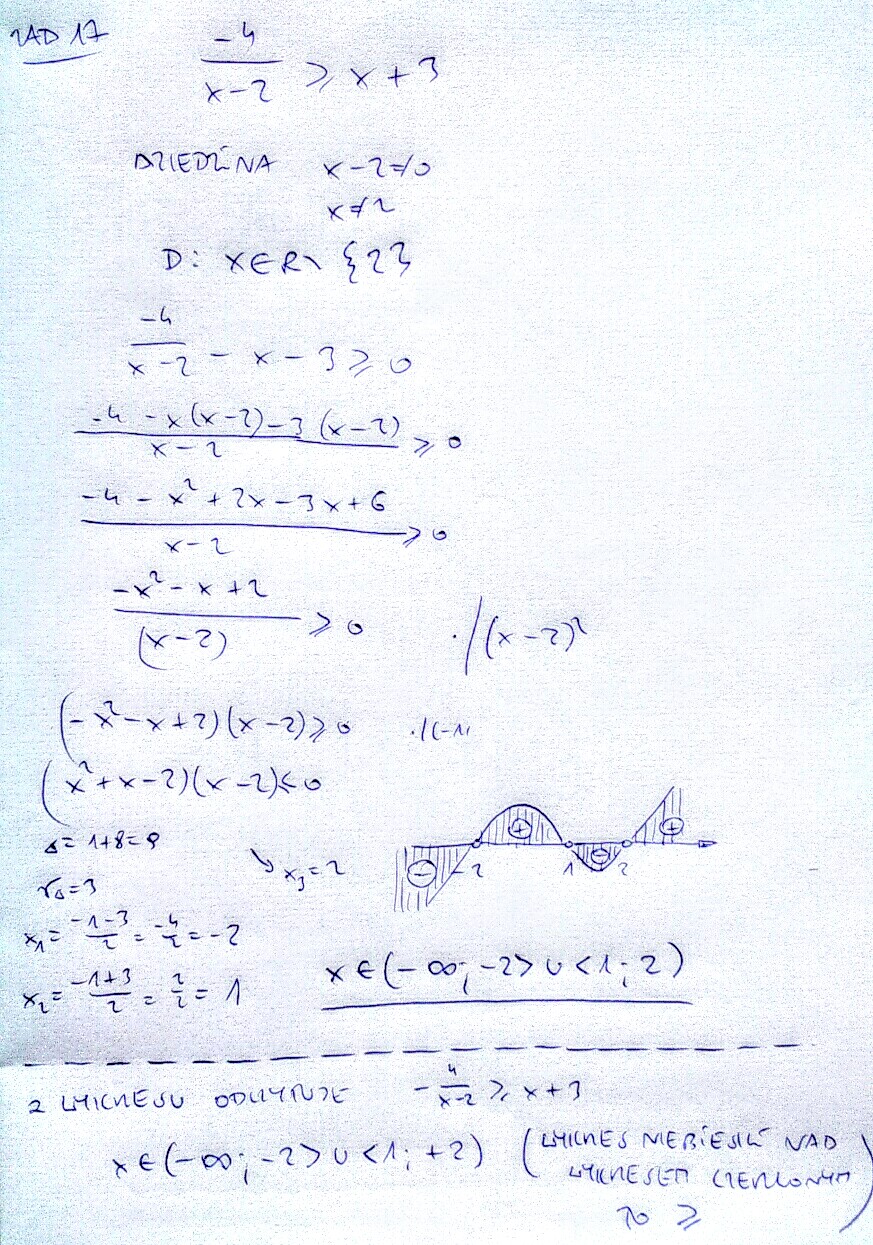 ZAD 17
-4/(x-2) ≥ x+3
DZIEDZINA x-2≠0
x≠2
D: x∈R\{2}
-4/(x-2) - x - 3 ≥ 0
(-4 - x(x-2) - 3(x-2))/(x-2) ≥ 0
(-4 - x² + 2x - 3x + 6)/(x-2) ≥ 0
(-x² - x + 2)/(x-2) ≥ 0 ·/(x-2)²
(-x² - x + 2)(x-2) ≥ 0 ·/(-1)
(x² + x - 2)(x-2) ≤ 0
Δ = 1+8 = 9
↘ x₃ = 2
√Δ = 3
- -2 + 1 - 2 +
x₁ = (-1-3)/2 = -4/2 = -2
x₂ = (-1+3)/2 = 2/2 = 1
x∈(-∞; -2> ∪ <1; 2)
Z WYKRESU ODCZYTUJE -4/(x-2) ≥ x+3
x∈(-∞; -2> ∪ <1; +2) (WYKRES NIEBIESKI NAD
WYKRESEM CZERWONYM
TO ≥)